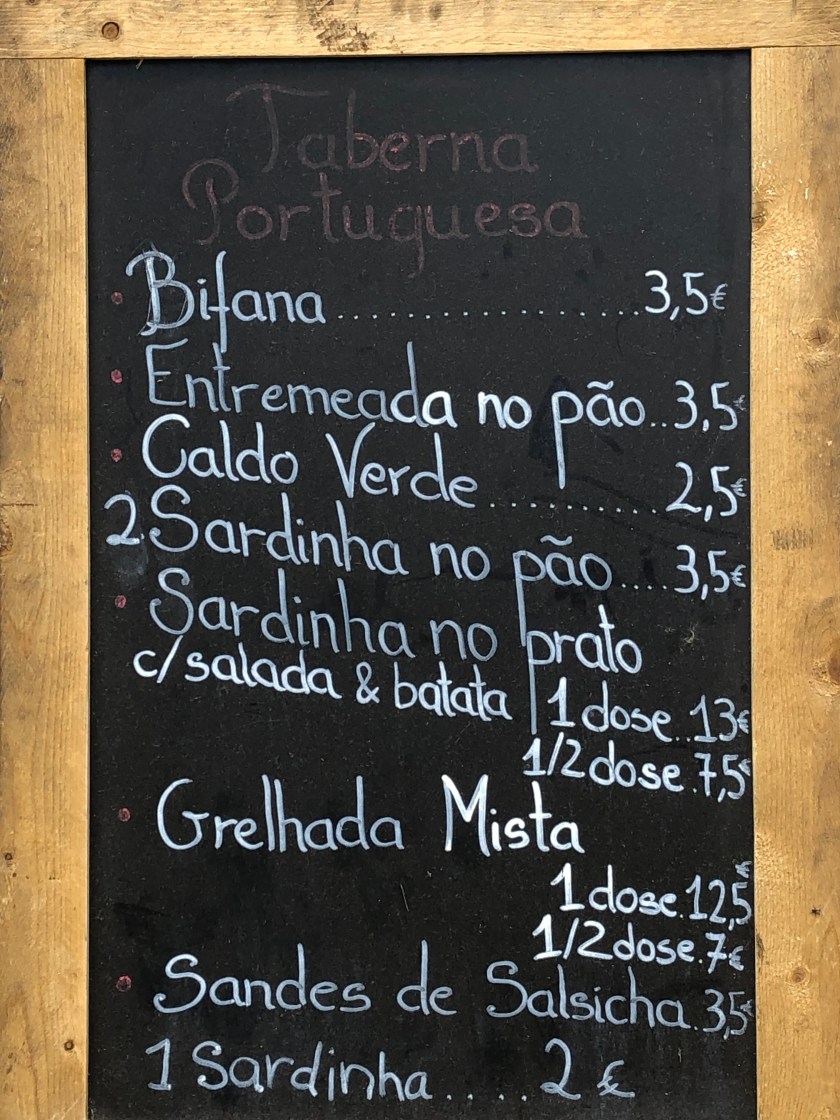 Taberna
Portuguesa
Bifana....................3,5€
Entremeada no pão..3,5€
Caldo Verde...........2,5€
2.Sardinha no pão....3,5€
Sardinha no prato
c/salada & batata
1 dose..13€
1/2 dose.7,5€
Grelhada Mista
1 dose.12,5€
1/2 dose.7€
Sandes de Salsicha.3,5€
1 Sardinha....2 €